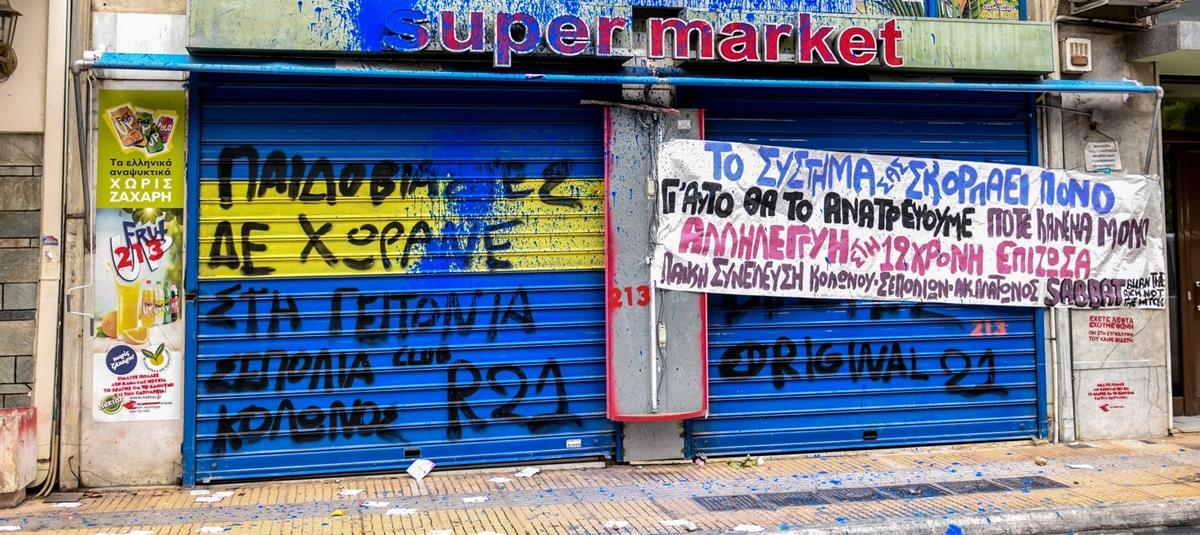 super market
Τα ελληνικά
αναψυκτικά
ΧΩΡΙΣ
ΖΑΧΑΡΗ
Frut
213
ΠΑΙΔΟΒΙΑΣΤΕΣ
ΔΕ ΧΩΡΑΝΕ
ΣΤΗ ΓΕΙΤΟΝΙΑ
ΣΕΠΟΛΙΑ CLUB
ΚΟΛΩΝΟΣ R21
213
ΤΟ ΣΥΣΤΗΜΑ ΣΑΣ ΣΚΟΡΠΑΕΙ ΠΟΝΟ
Γ'ΑΥΤΟ ΘΑ ΤΟ ΑΝΑΤΡΕΨΟΥΜΕ ΠΟΤΕ ΚΑΝΕΝΑ ΜΟΝΟ
ΑΛΛΗΛΕΓΓΥΗ ΣΤΗ 12ΧΡΟΝΗ ΕΠΙΖΩΣΑ
ΛΑΙΚΗ ΣΥΝΕΛΕΥΣΗ ΚΟΛΩΝΟΥ·ΣΕΠΟΛΙΩΝ·ΑΚ.ΠΛΑΤΩΝΟΣ SABBAT BURN THE
DICK NOT
THE WITCH
213
ORIGINAL 21
ΕΧΕΤΕ ΛΕΦΤΑ
ΕΧΟΥΜΕ ΦΩΝΗ